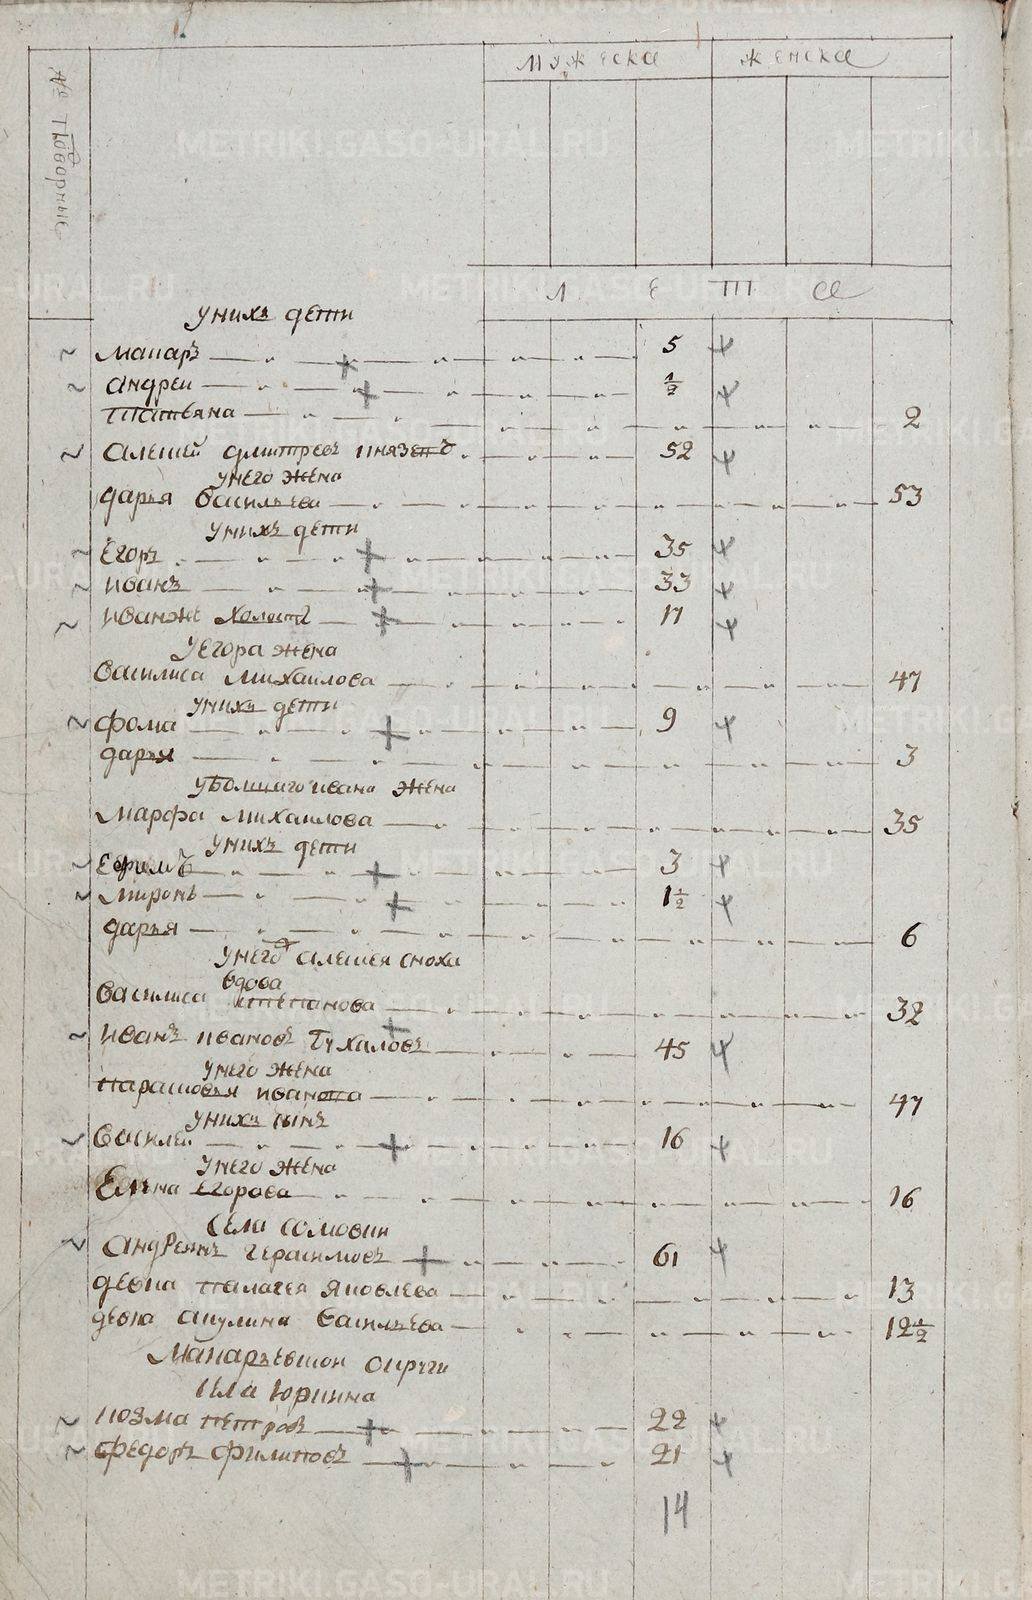 METRIKI.GASO-URAL.RU
мужеска женска
№ дворные
л е т а
у нихъ дети
макаръ 5
андреи ½
татьяна 2
алеѯеи дмитревъ князевъ 52
у него жена
дарья васильева 53
у нихъ дети
егоръ 35
иванъ 33
иванже холостъ 17
у егора жена
василиса михаилова 47
у нихъ дети
фома 9
дарья 3
у болшаго ивана жена
марфа михаилова 35
у нихъ дети
ефимъ 3
миронъ 1½
дарья 6
у него алеѯея сноха
вдова
василиса степанова 32
иванъ ивановъ 45
у него жена
парасковья иванова 47
у нихъ сынъ
василеи 16
у него жена
елена егорова 16
села
андреянъ герасимовъ 61
девка палагея яковлева 13
девка акулина васильева 12½
макарьевскои округи
села юркина
козма петровъ 22
федоръ филиповъ 21
14